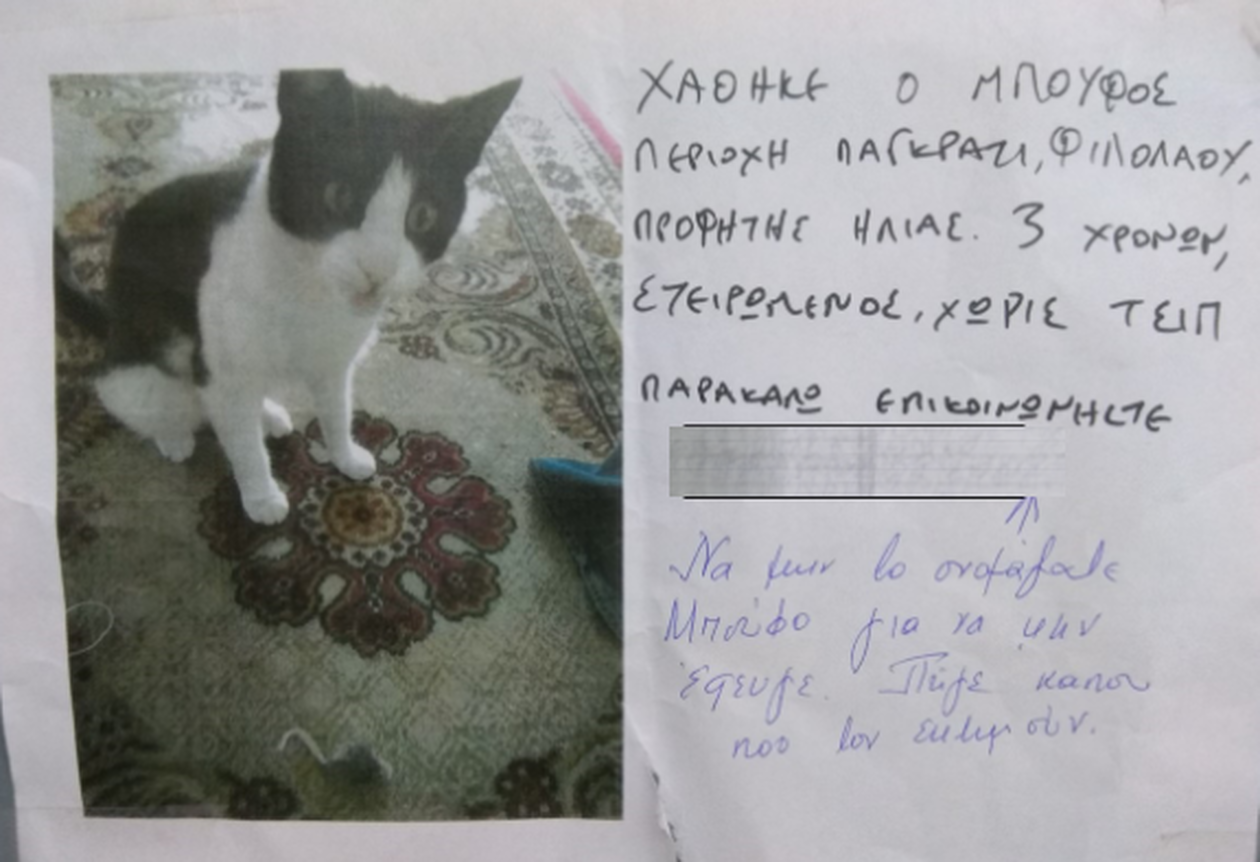 ΧΑΘΗΚΕ Ο ΜΠΟΥΦΟΣ
ΠΕΡΙΟΧΗ ΠΑΓΚΡΑΤΙ, ΦΙΛΟΛΑΟΥ,
ΠΡΟΦΗΤΗΣ ΗΛΙΑΣ. 3 ΧΡΟΝΩΝ,
ΣΤΕΙΡΩΜΕΝΟΣ, ΧΩΡΙΣ ΤΣΙΠ
ΠΑΡΑΚΑΛΩ ΕΠΙΚΟΙΝΩΝΗΣΤΕ
Να μην το ονομάζατε
Μπούφο για να μην
έφευγε. Πήγε κάπου
που τον εκτιμούν.